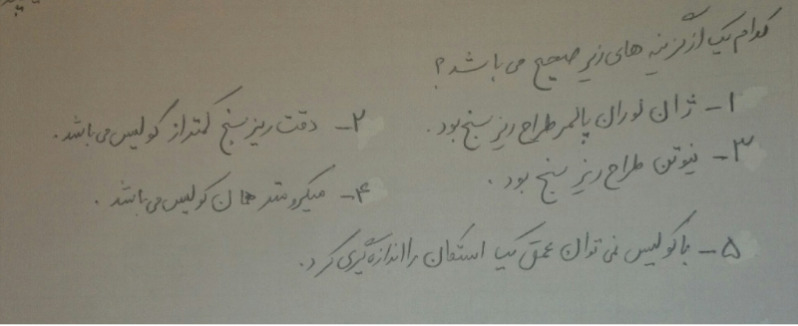 کدام یک از گزینه های زیر صحیح می باشد؟
۱- ژان لوران پالمر طراح ریز سنج بود.
۲- دقت ریز سنج کمتر از کولیس می باشد.
۳- نیوتن طراح ریز سنج بود.
۴- میکرومتر همان کولیس می باشد.
۵- با کولیس نمی توان عمق یک استکان را اندازه گیری کرد.